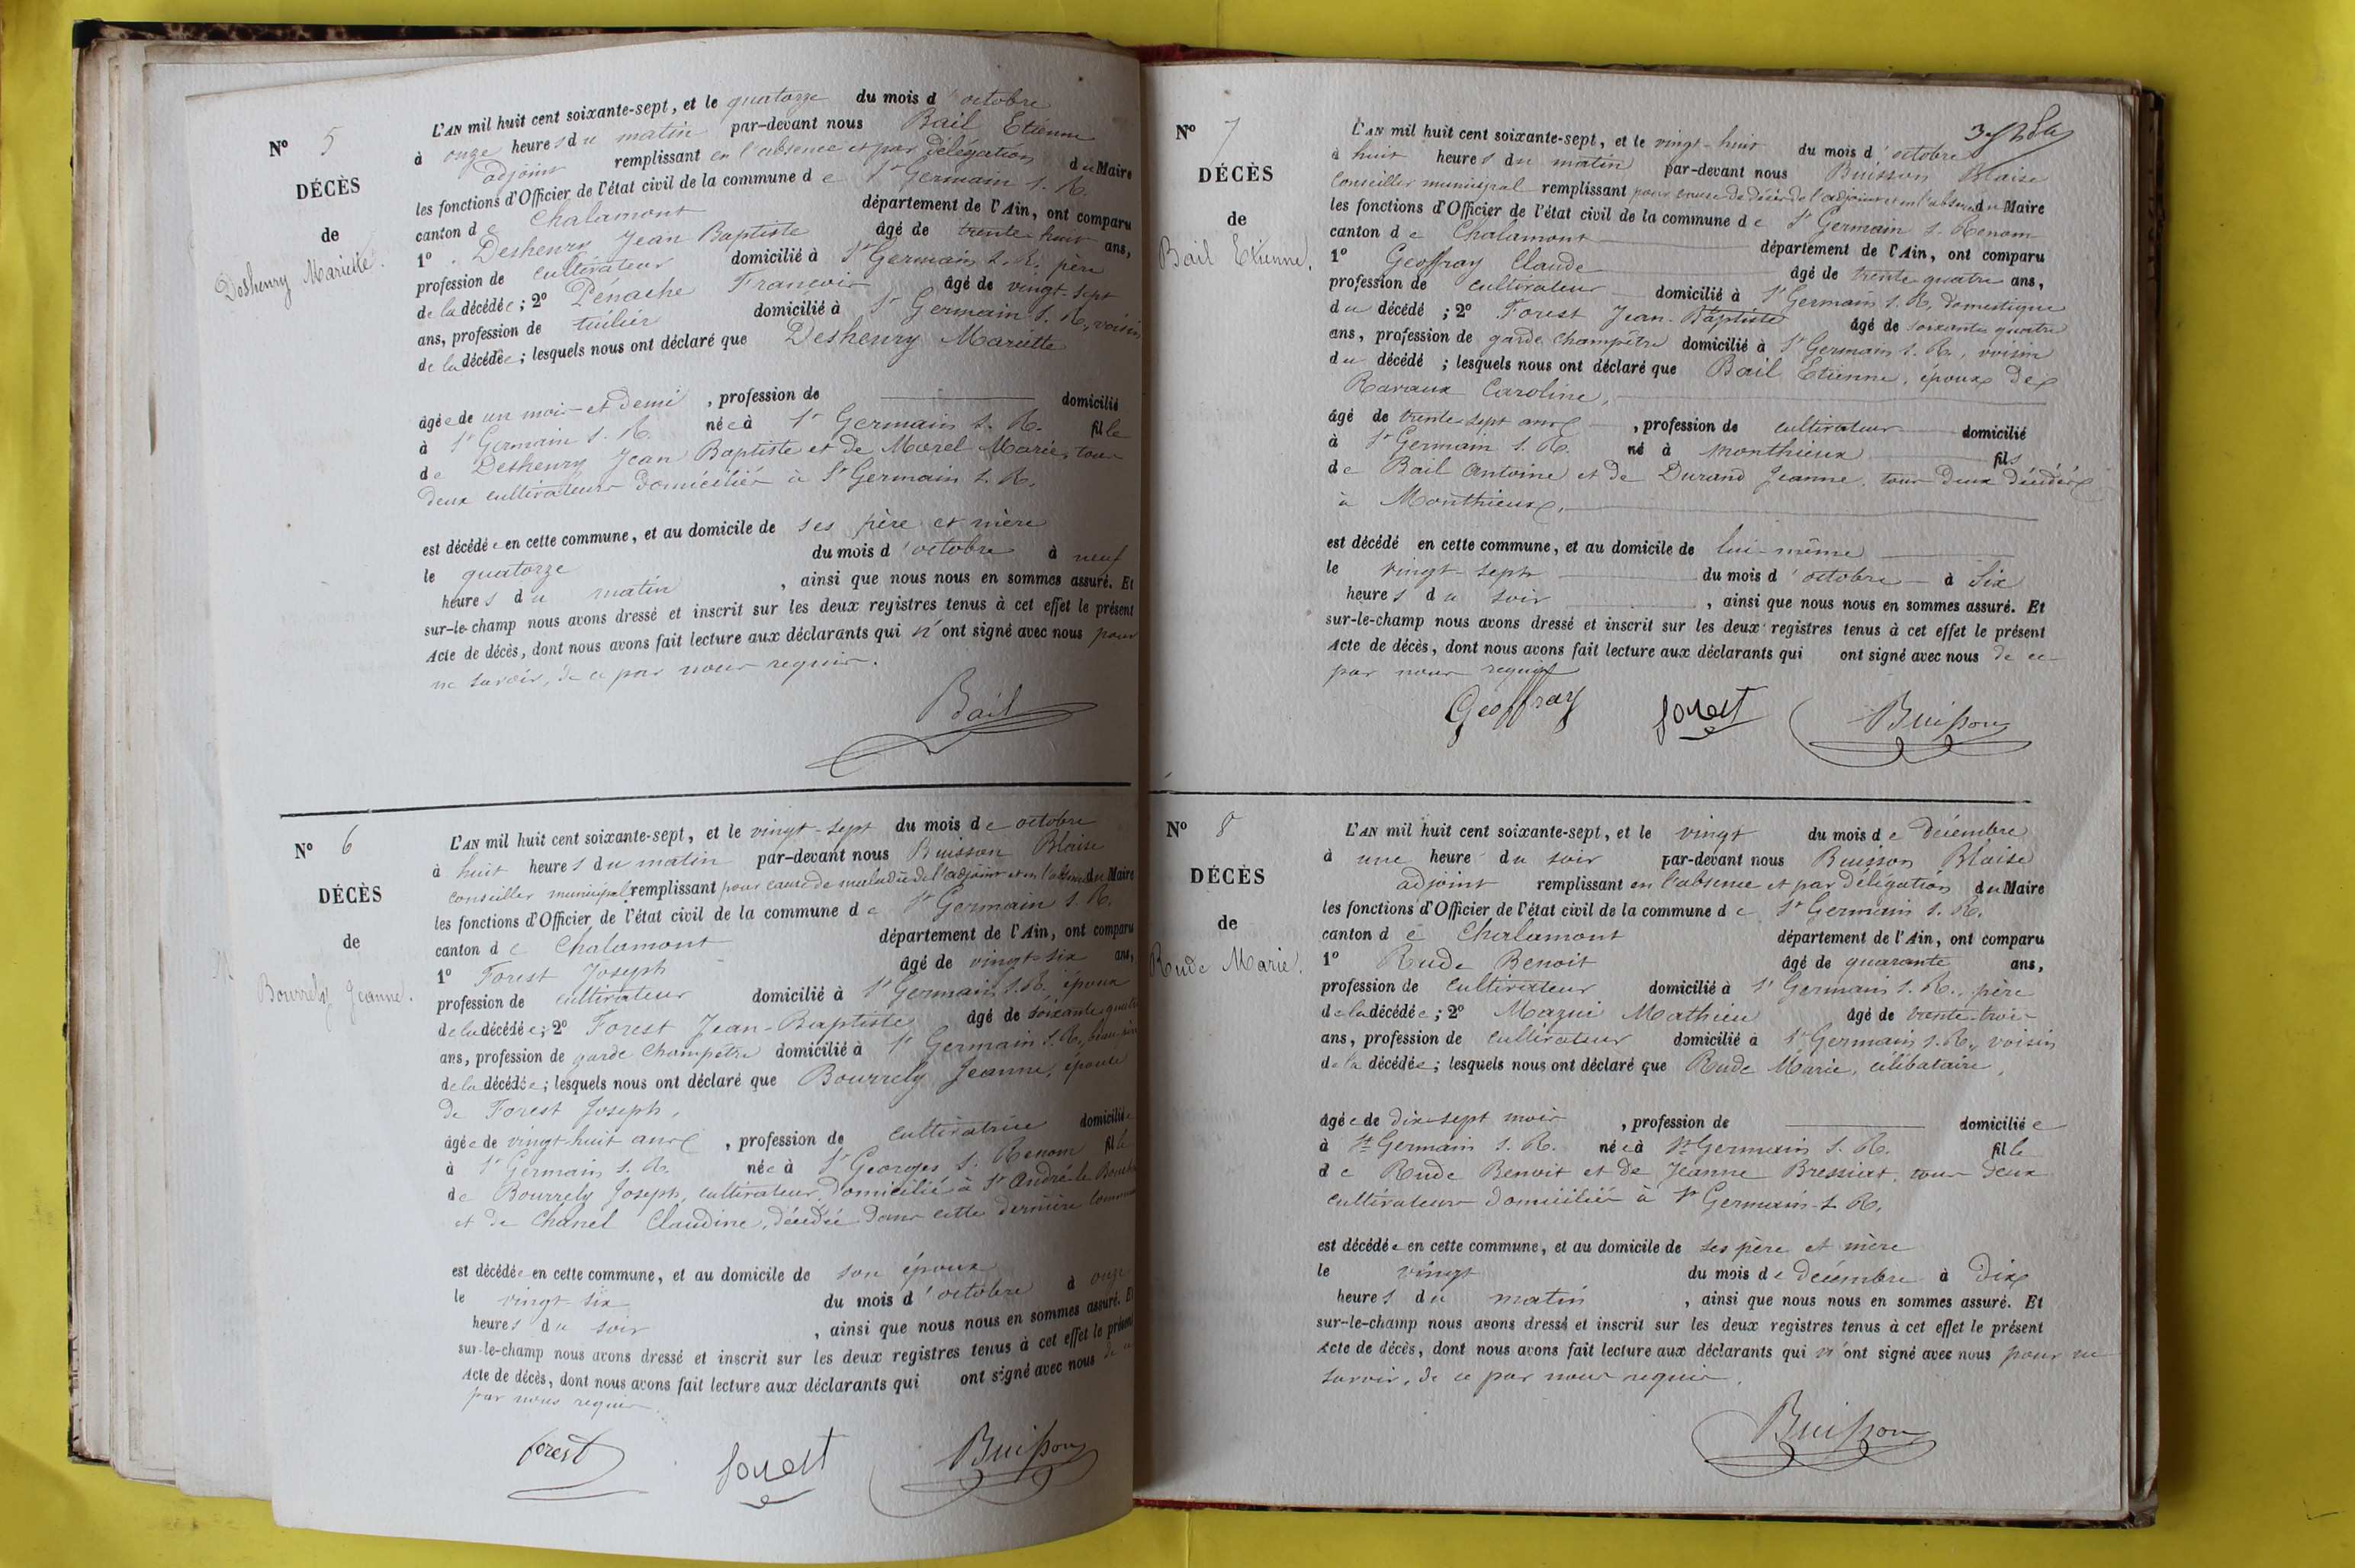 N° 5
DÉCÈS
de
Deshenry Mariette.
L'AN mil huit cent soixante-sept, et le quatorze du mois d'octobre
à onze heures du matin par-devant nous Bail Etienne
adjoint remplissant en l'absence et par délégation du Maire
les fonctions d'Officier de l'état civil de la commune de St Germain s. R.
canton de Chalamont département de l'Ain, ont comparu
1° Deshenry Jean Baptiste âgé de trente-huit ans,
profession de cultivateur domicilié à St Germain s. R. père
de la décédée ; 2° Pénache Francois âgé de vingt-sept
ans, profession de tuilier domicilié à St Germain s. R., voisin
de la décédée ; lesquels nous ont déclaré que Deshenry Mariette
âgée de un mois et demi , profession de domicilié
à St Germain s. R. née à St Germain s. R. fille
de Deshenry Jean Baptiste et de Morel Marie, tous
deux cultivateurs domiciliés à St Germain s. R.
est décédée en cette commune, et au domicile de ses père et mère
le quatorze du mois d'octobre à neuf
heures du matin , ainsi que nous nous en sommes assuré. Et
sur-le-champ nous avons dressé et inscrit sur les deux registres tenus à cet effet le présent
Acte de décès, dont nous avons fait lecture aux déclarants qui n'ont signé avec nous pour
ne savoir, de ce par nous requis.
Bail
N° 6
DÉCÈS
de
Bourrely Jeanne.
L'AN mil huit cent soixante-sept, et le vingt-sept du mois de octobre
à huit heures du matin par-devant nous Buisson Blaise
conseiller municipal remplissant pour cause de maladie de l'adjoint et en l'absence du Maire
les fonctions d'Officier de l'état civil de la commune de St Germain s. R.
canton de Chalamont département de l'Ain, ont comparu
1° Forest Joseph âgé de vingt-six ans,
profession de cultivateur domicilié à St Germain s. R. époux
de la décédée ; 2° Forest Jean-Baptiste âgé de soixante quatre
ans, profession de garde champêtre domicilié à St Germain s. R., beau-père
de la décédée ; lesquels nous ont déclaré que Bourrely Jeanne, épouse
de Forest Joseph,
âgée de vingt-huit ans , profession de cultivatrice domiciliée
à St Germain s. R. née à St Georges s. Renom fille
de Bourrely Joseph, cultivateur, domicilié à St André-le-Bouchoux
et de Chanel Claudine, décédée dans cette dernière commune
est décédée en cette commune, et au domicile de son époux
le vingt-six du mois d'octobre à onze
heures du soir , ainsi que nous nous en sommes assuré. Et
sur-le-champ nous avons dressé et inscrit sur les deux registres tenus à cet effet le présent
Acte de décès, dont nous avons fait lecture aux déclarants qui ont signé avec nous de ce
par nous requis.
forest forest Buisson
N° 7
DÉCÈS
de
Bail Etienne.
L'AN mil huit cent soixante-sept, et le vingt-huit du mois d'octobre
à huit heures du matin par-devant nous Buisson Blaise
Conseiller municipal remplissant pour cause de décès de l'adjoint et en l'absence du Maire
les fonctions d'Officier de l'état civil de la commune de St Germain s. Renom
canton de Chalamont département de l'Ain, ont comparu
1° Geoffray Claude âgé de trente quatre ans,
profession de cultivateur domicilié à St Germain s. R, domestique
du décédé ; 2° Forest Jean-Baptiste âgé de soixante quatre
ans, profession de garde champêtre domicilié à St Germain s. R., voisin
du décédé ; lesquels nous ont déclaré que Bail Etienne, époux de
Ravaux Caroline,
âgé de trente sept ans , profession de cultivateur domicilié
à St Germain s. R. né à Monthieux fils
de Bail Antoine et de Durand Jeanne, tous deux décédés
à Monthieux,
est décédé en cette commune, et au domicile de lui-même
le vingt-sept du mois d'octobre à Six
heures du soir , ainsi que nous nous en sommes assuré. Et
sur-le-champ nous avons dressé et inscrit sur les deux registres tenus à cet effet le présent
Acte de décès, dont nous avons fait lecture aux déclarants qui ont signé avec nous de ce
par nous requis
Geoffray forest Buisson
N° 8
DÉCÈS
de
Rude Marie.
L'AN mil huit cent soixante-sept, et le vingt du mois de décembre
à une heure du soir par-devant nous Buisson Blaise
adjoint remplissant en l'absence et par délégation du Maire
les fonctions d'Officier de l'état civil de la commune de St Germain s. R.
canton de Chalamont département de l'Ain, ont comparu
1° Rude Benoit âgé de quarante ans,
profession de cultivateur domicilié à St Germain s. R., père
de la décédée ; 2° Mazui Mathieu âgé de trente-trois
ans, profession de cultivateur domicilié à St Germain s. R., voisin
de la décédée ; lesquels nous ont déclaré que Rude Marie, célibataire,
âgée de dix-sept mois , profession de domiciliée
à St Germain s. R. née à St Germain s. R. fille
de Rude Benoit et de Jeanne Bressiat, tous deux
cultivateurs domiciliés à St Germain-s R.
est décédée en cette commune, et au domicile de ses père et mère
le vingt du mois de décembre à Dix
heures du matin , ainsi que nous nous en sommes assuré. Et
sur-le-champ nous avons dressé et inscrit sur les deux registres tenus à cet effet le présent
Acte de décès, dont nous avons fait lecture aux déclarants qui n'ont signé avec nous pour ne
savoir, de ce par nous requis.
Buisson